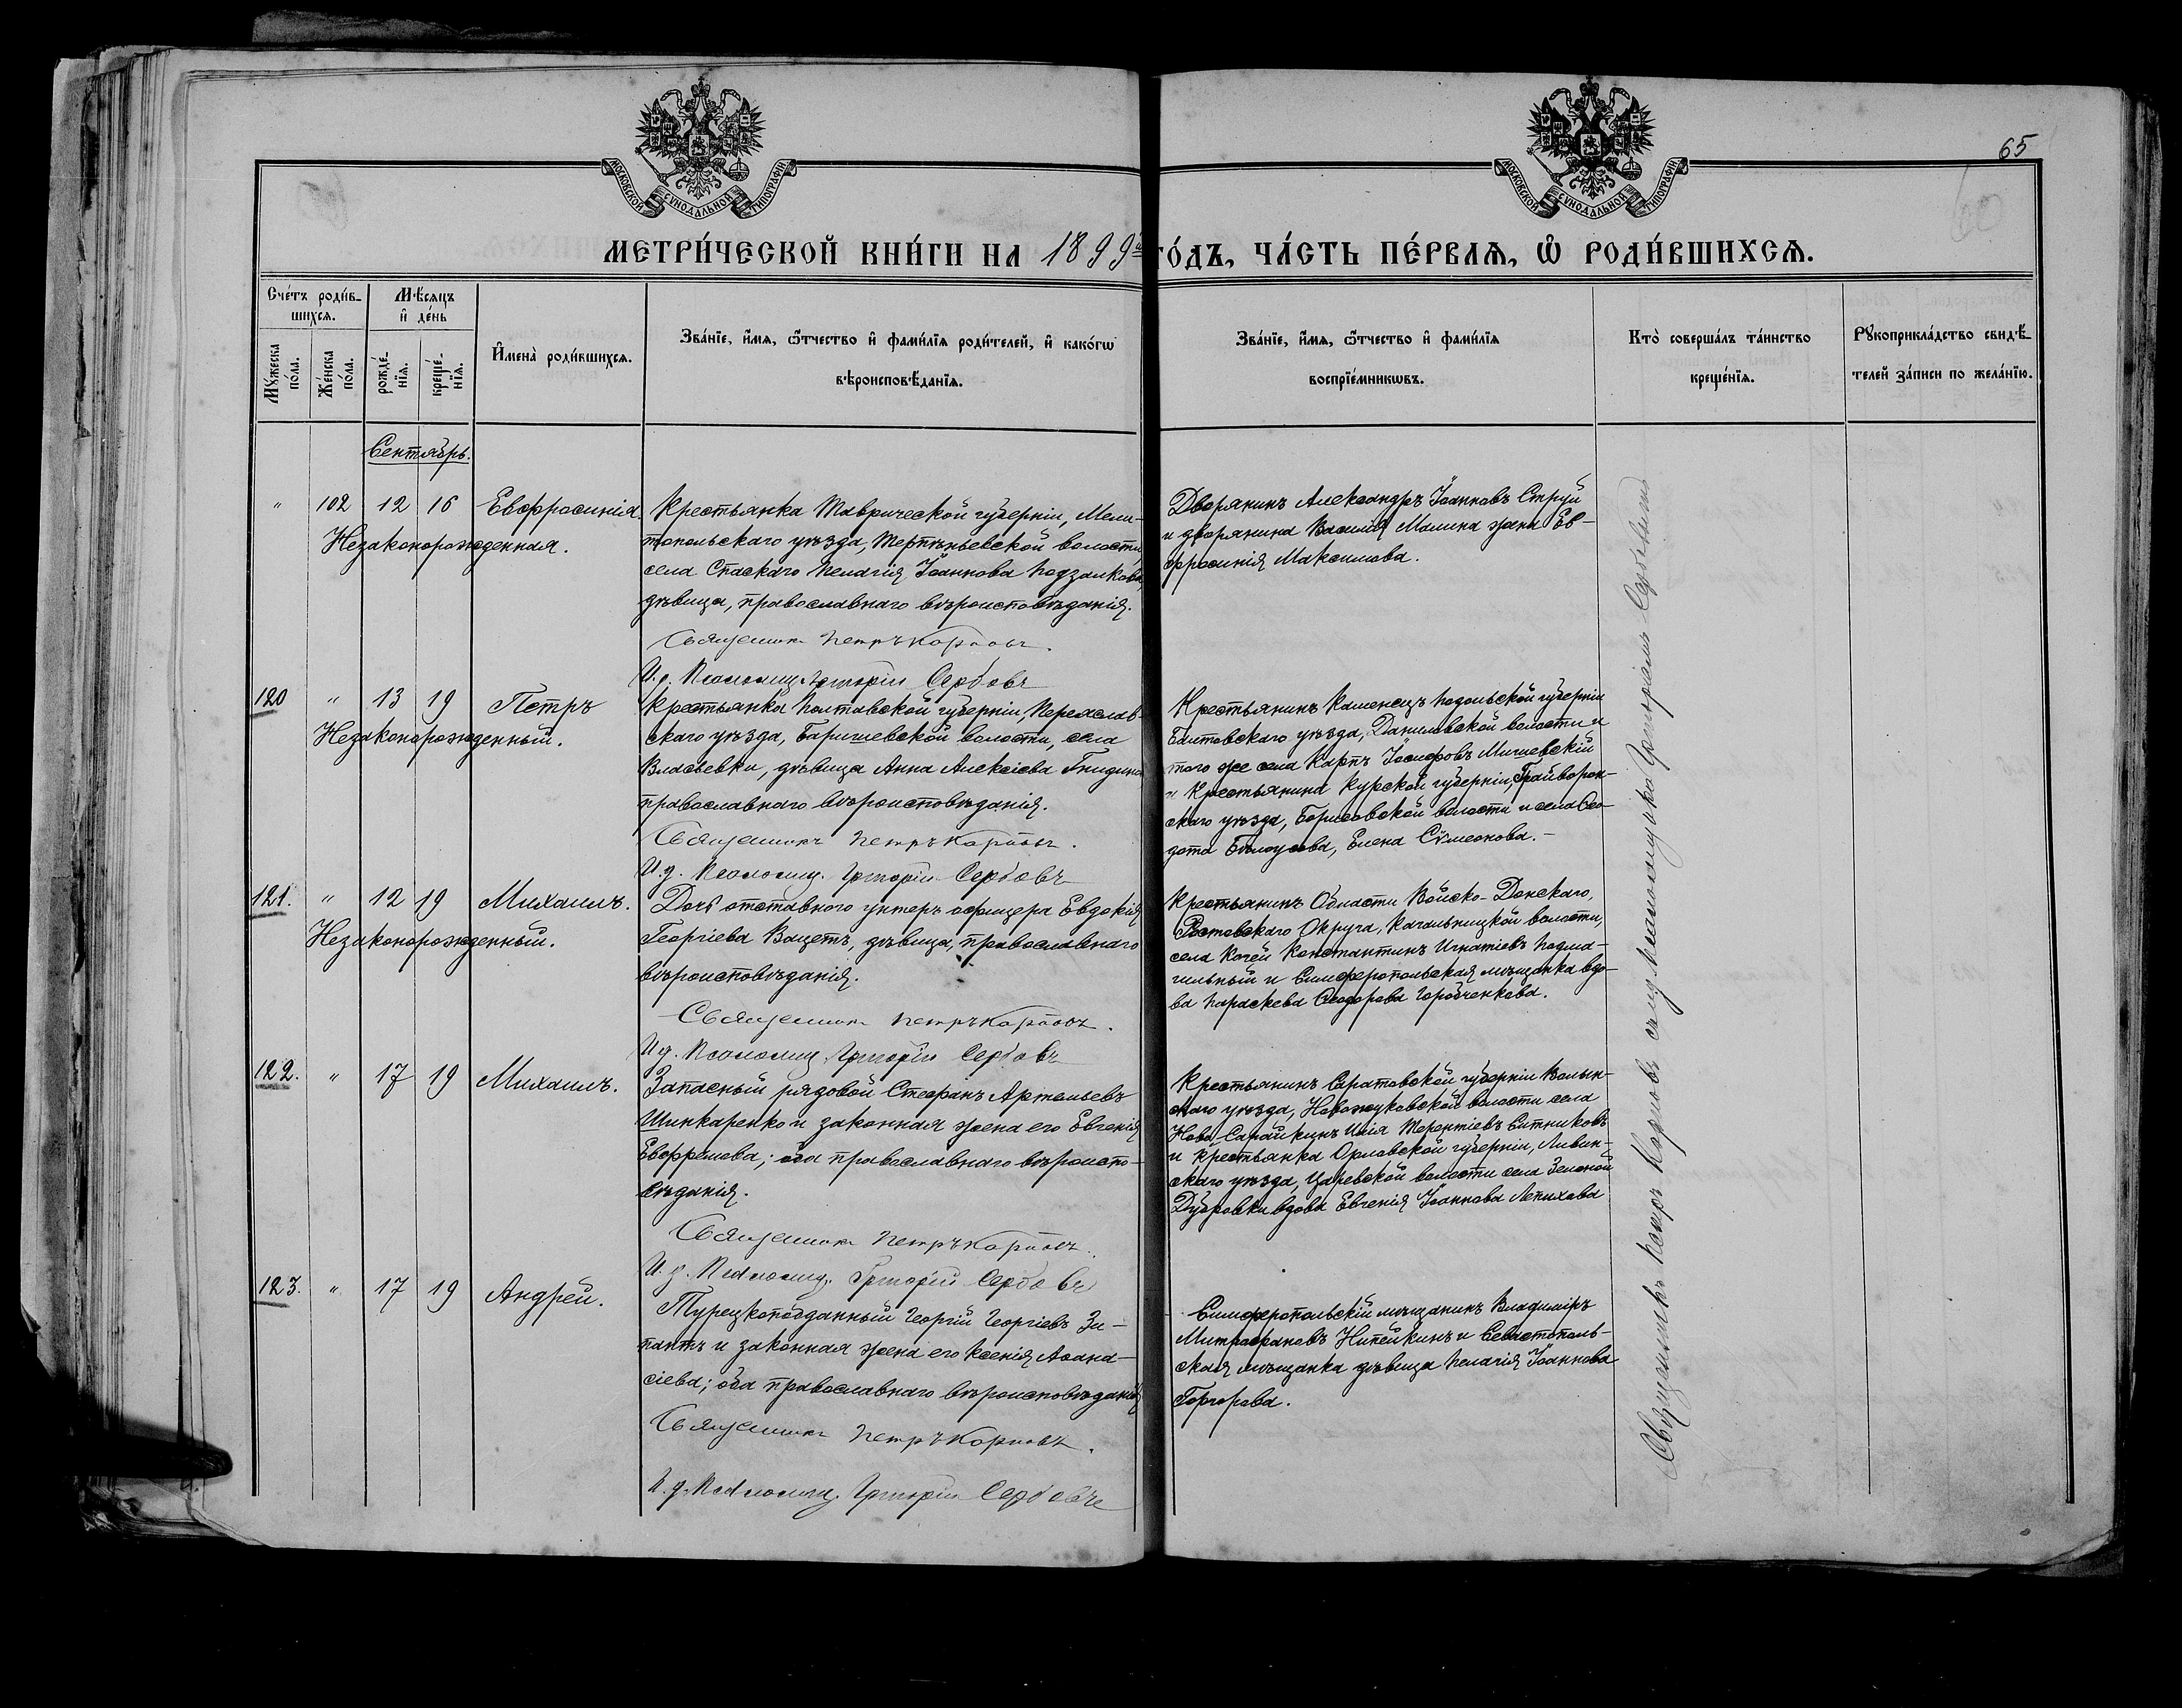 65
МОСКОВСКОЙ СУНОДАЛЬНОЙ ТИПОГРАФІИ
МОСКОВСКОЙ СУНОДАЛЬНОЙ ТИПОГРАФІИ
МЕТРИ́ЧЕСКОЙ КНИ́ГИ НА 1899й ГО́ДЪ, ЧА́СТЬ ПЕ́РВАѦ, Ѽ РОДИ́ВШИХСѦ.
Сче́тъ роди́в-
шихсѧ.
Мꙋжеска по́ла.
Же́нска по́ла.
Мѣ́сѧцъ
и҆ де́нь
рожде́-нїѧ.
креще́-нїѧ.
И҆мена̀ роди́вшихсѧ.
Зва́нїе, и҆́мѧ, ѻ҆́тчество и҆ фами́лїѧ роди́телей, и҆ како́гѡ
вѣроисповѣ́данїѧ.
Зва́нїе, и҆́мѧ, ѻ҆́тчество и҆ фами́лїѧ
воспрїе́мникѡвъ.
Кто̀ соверша́лъ та́инство
креще́нїѧ.
Рꙋкоприкла́дство свидѣ́-
телей за́писи по жела́нїю.
Сентябрь.
" 102 12 16 Евфросинія.
Незаконорожденная.
Крестьянка Таврической губерніи, Мели-
топольскаго уѣзда, Терпѣньевской волости,
села Спаскаго Пелагія Іоаннова
дѣвица, православнаго вѣроисповѣданія.
Священникъ Петръ Карповъ.
И.д. Псаломщ. Григорій Сербовъ
Дворянинъ Александръ Іоанновъ Струй
и дворянина Василія Малина жена Ев-
фросинія Максимова.
120 " 13 19 Петръ
Незаконорожденный.
Крестьянка Полтавской губерніи, Переяслав-
скаго уѣзда, Баришевской волости, села
Власьевки, дѣвица Анна Алексіева Гнидина
православнаго вѣроисповѣданія.
Священникъ Петръ Карповъ.
И.д. Псаломщ. Григорій Сербовъ
Крестьянинъ Каменецъ Подольской губерніи
Балтавскаго уѣзда, Даниловской волости и
того же села Карпъ Іосифовъ Мишевскій
и крестьянина Курской губерніи, Грайворон-
скаго уѣзда, Борисовской волости и села Ѳео-
дота Бѣлоусова, Елена Сѵмеонова.-
121. " 12 19 Михаилъ.
Незаконорожденный.
Дочь отставного унтеръ офицера Евдокія
Георгіева Вацетъ, дѣвица, православнаго
вѣроисповѣданія.
Священникъ Петръ Карповъ.
И.д. Псаломщ. Григорій Сербовъ
Крестьянинъ Области Войско-Донскаго,
Ростовскаго Округа, Кагальницкой волости,
села Константинъ Игнатіевъ Подма-
гильный и Симферопольская мѣщанка вдо-
ва Параскева Ѳеодорова Горобченкова.
122. " 17 19 Михаилъ.
Запасный рядовой Стефанъ Артемьевъ
Шинкаренко и законная жена его Евгенія
; оба православнаго вѣроиспо-
вѣданія.
Священникъ Петръ Карповъ.
И.д. Псаломщ. Григорій Сербовъ
Крестьянинъ Саратовской губерніи
скаго уѣзда, Новожуковской волости села
Илія Терентіевъ Ситниковъ
и крестьянка Орловской губерніи, Ливен-
скаго уѣзда, волости села Зеленой
Дубровки вдова Евгенія Іоаннова Лепихова
123. " 17 19 Андрей.
Турецкоподданный Георгій Георгіевъ Зи-
пантъ и законная жена его Ксенія Аѳана-
сіева; оба православнаго вѣроисповѣданія
Священникъ Петръ Карповъ.
И.д. Псаломщ. Григорій Сербовъ
Симферопольскій мѣщанинъ Владиміръ
Митрофановъ Нипейкинъ и Севастополь-
ская мѣщанка дѣвица Пелагія Іоаннова
Горгорова.
Священникъ Петръ Карповъ съ и.д. псаломщика Григоріемъ Сербовымъ